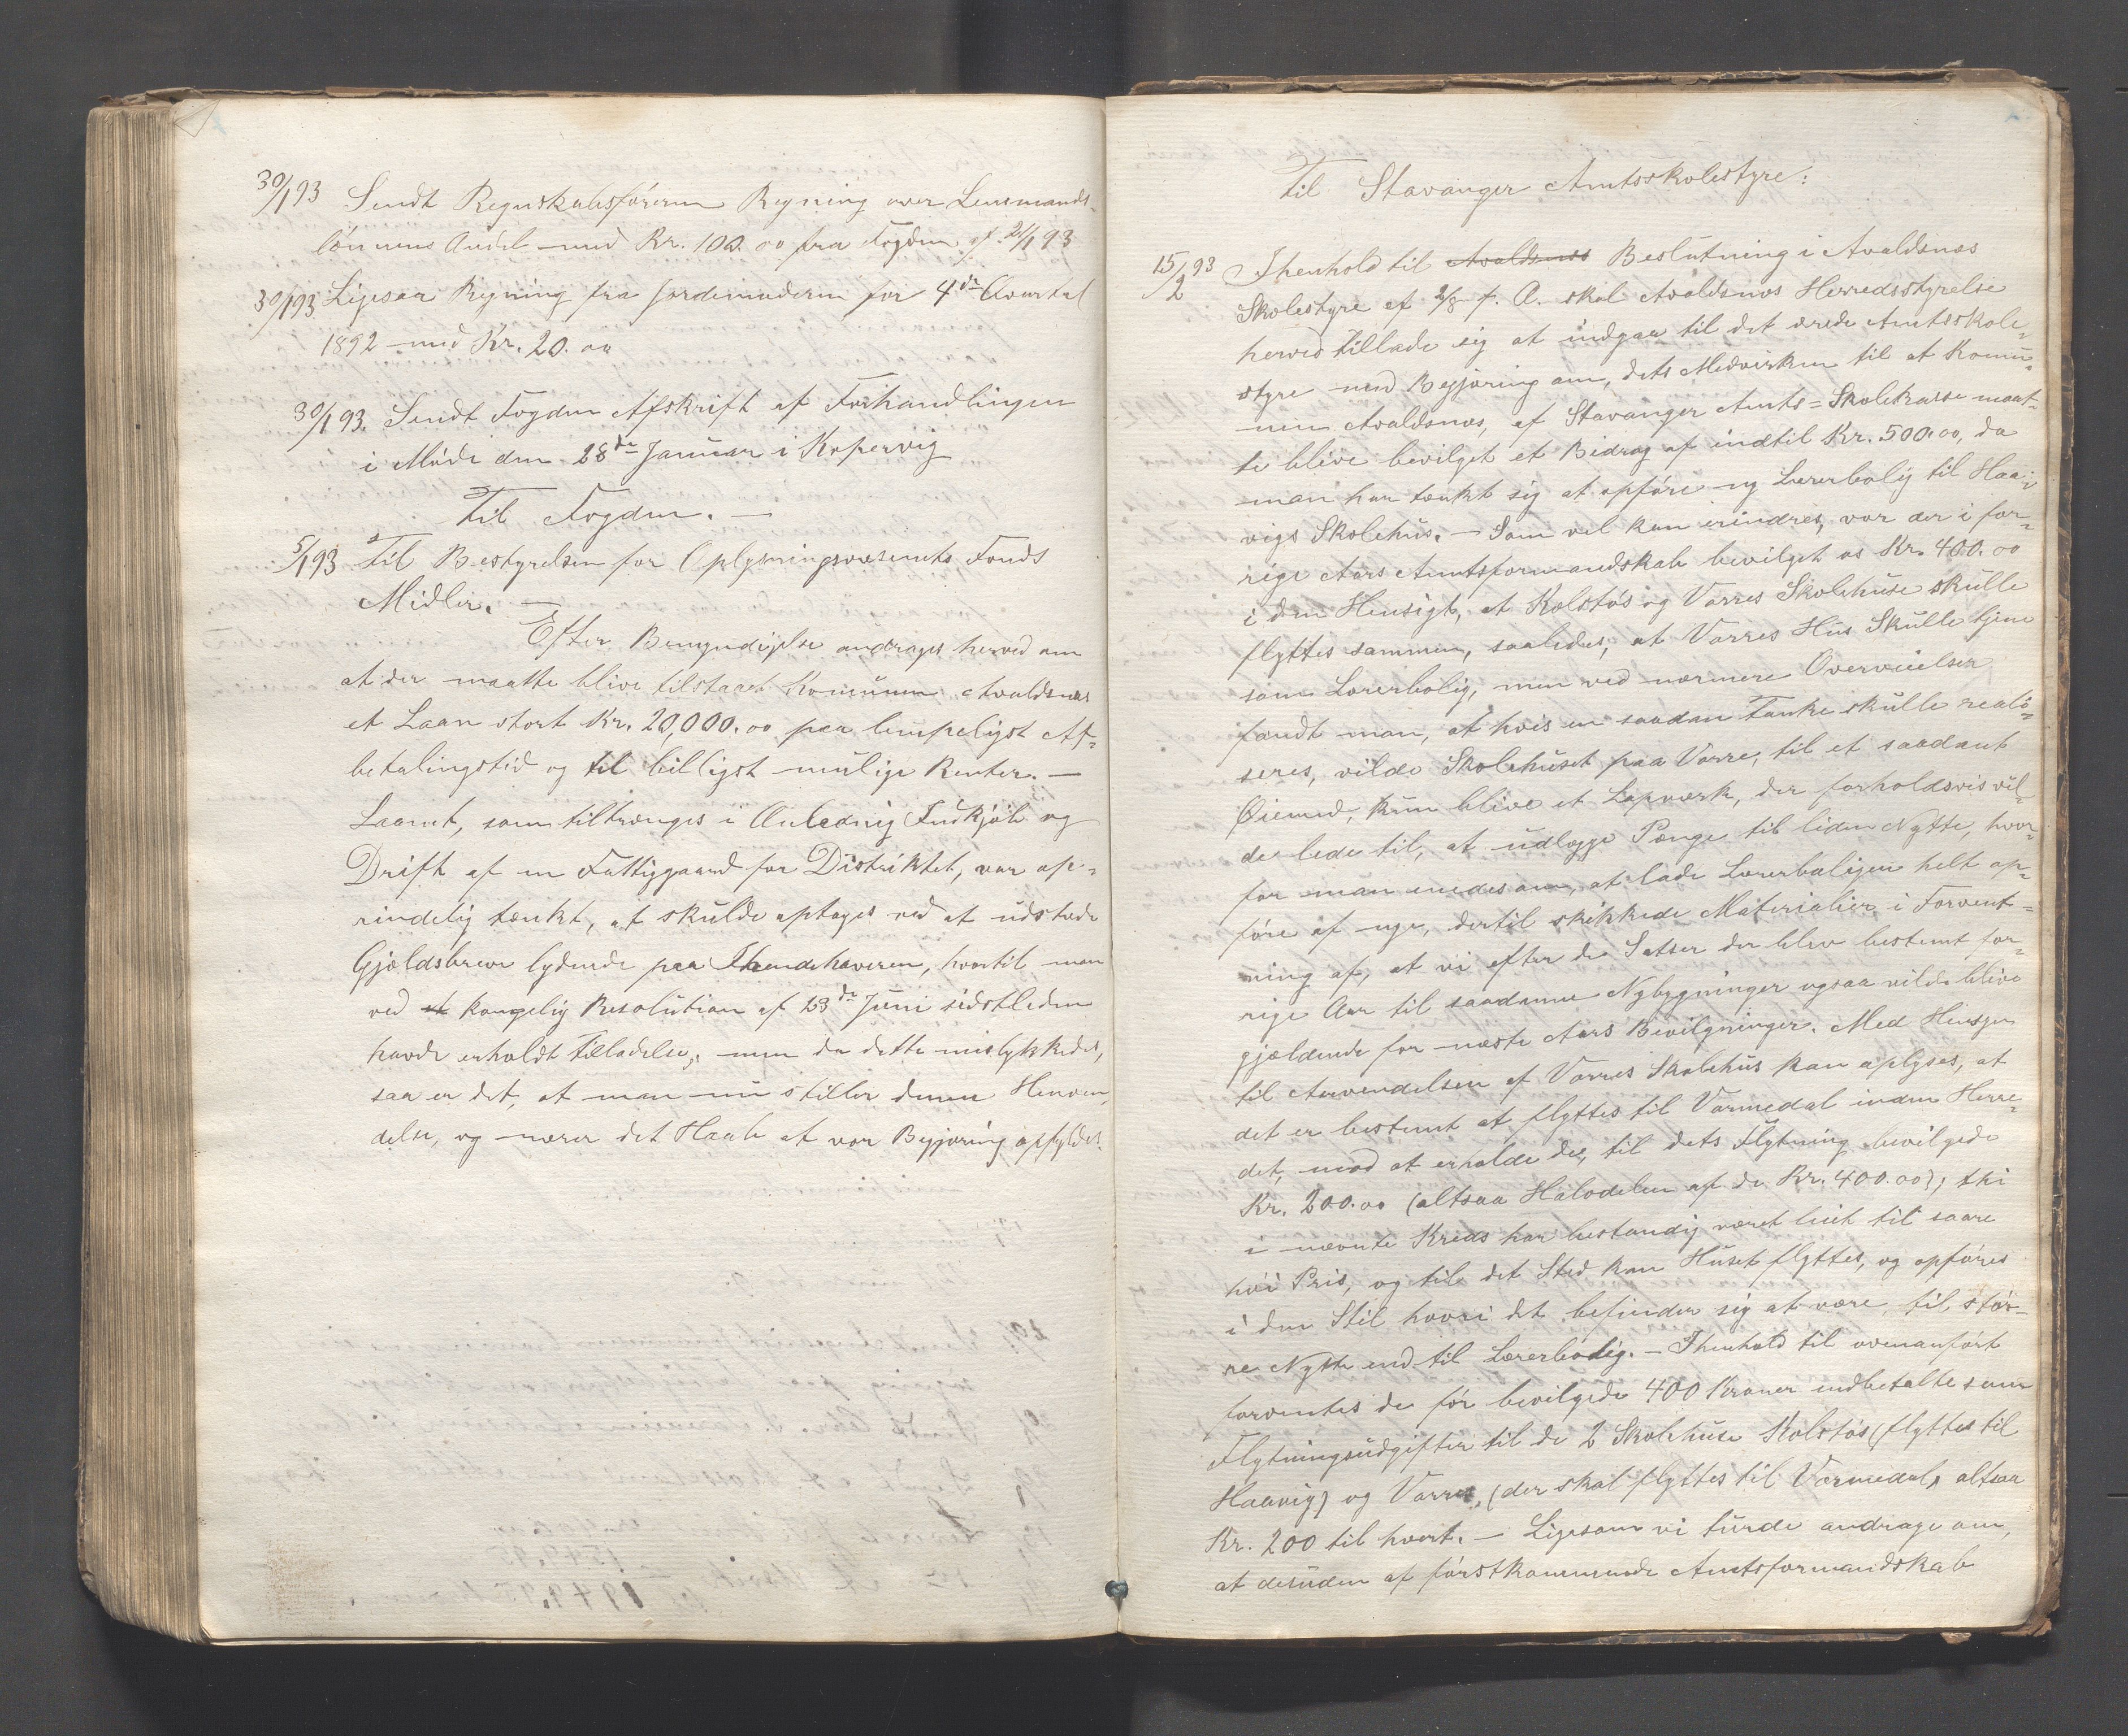 30/1 93 Sendt Regnskabsföreren Regning over Lensmands-
lönnens Andel med Kr. 100.00 fra Fogden af 21/1 93
30/1 93 Ligesaa Regning fra Jordemoderen for 4de Qvartal
1892 med Kr. 20.00
30/1 93. Sendt Fogden Afskrift af Forhandlingen
i Möde den 28de Januar i Kopervig
Til Fogden. —
5/1 93 Til Bestyrelsen for Oplysningsvæsenets Fonds
Midler. —
Efter Bemyndigelse andrages herved om
at der maatte blive tilstaaet Komunen Avaldsnæs
et Laan stort Kr. 20,000.00 paa lempeligst Af-
betalingstid og til billigst mulige Renter. —
Laanet, som tiltrænges i Anlednig Indkjöb og
Drift af en Fattiggaard for Distriktet, var op-
rindelig tænkt, at skulde optages ved at udstede
Gjældsbreve lydende paa Ihendehaveren, hvortil man
ved et kongelig Resolution af 23de Juni sidstleden
havde erholdt Tilladelse, men da dette mislykkedes,
saa er det, at man nu stiller denne Henven-
delse, og nærer det Haab at vor Begjæring opfyldes.
Til Stavanger Amtsskolestyre:
15/2 93 Ihenhold til Avaldsnæs Beslutning i Avaldsnæs
Skolestyre af 2/8 f. A. skal Avaldsnæs Herredsstyrelse
herved tillade sig at indgaa til det ærede Amtsskole-
styre med Begjæring om, dets Medvirken til at Komu-
nen Avaldsnæs, af Stavanger Amts=Skolekasse maat-
te blive bevilget et Bidrag af indtil Kr. 500.00, da
man har tænkt sig at opföre ny Lærerbolig til Haa-
vigs Skolehus. — Som vel kan erindres, var der i for-
rige Aars Amtsformandskab bevilget os Kr. 400.00
i den Hensigt, at Kolstös og Vorres Skolehuse skulle
flyttes sammen, saaledes, at Vorres Hus skulle tjene
som Lærerbolig, men ved nærmere Overveielser
fandt man, at hvis en saadan Tanke skulle reali-
seres, vilde Skolehuset paa Vorre, til et saadant
Øiemed, kun blive et Lapverk, der forholdsvis vil-
de lede til, at udlægge Penge til liden Nytte, hvor-
for man enedes om, at lade Lærerboligen helt op-
före af nye, dertil skikkede Materialier, i Forvent-
ning af, at vi efter de Satser der blev bestemt for-
rige Aar til saadanne Nybygninger ogsaa vilde blive
gjældende for næste Aars Bevilgninger. Med Hensyn
til Anvendelsen af Vorres Skolehus kan oplyses, at
det er bestemt at flyttes til Vormedal inden Herre-
det, mod at erholde de, til dets Flytning bevilgede
Kr. 200.00 (altsaa Halvdelen af de Kr. 400.00); thi
i nævnte Kreds har bestandig været leiet til saare
höi Pris, og til det Sted kan Huset flyttes, og opföres
i den Stil hvori det befinder sig at være, til stör-
re Nytte end til Lærerbolig. — Ihenhold til ovenanfört
forventes de för bevilgede 400 Kroner indbetalte som
Flytningsudgifter til de 2 Skolehuse Kolstös (flyttes til
Haavig) og Vorres, (der skal flyttes til Vormedal, altsaa
Kr. 200 til hvert. — Ligesom vi turde andrage om,
at desuden af förstkommende Amtsformandskab